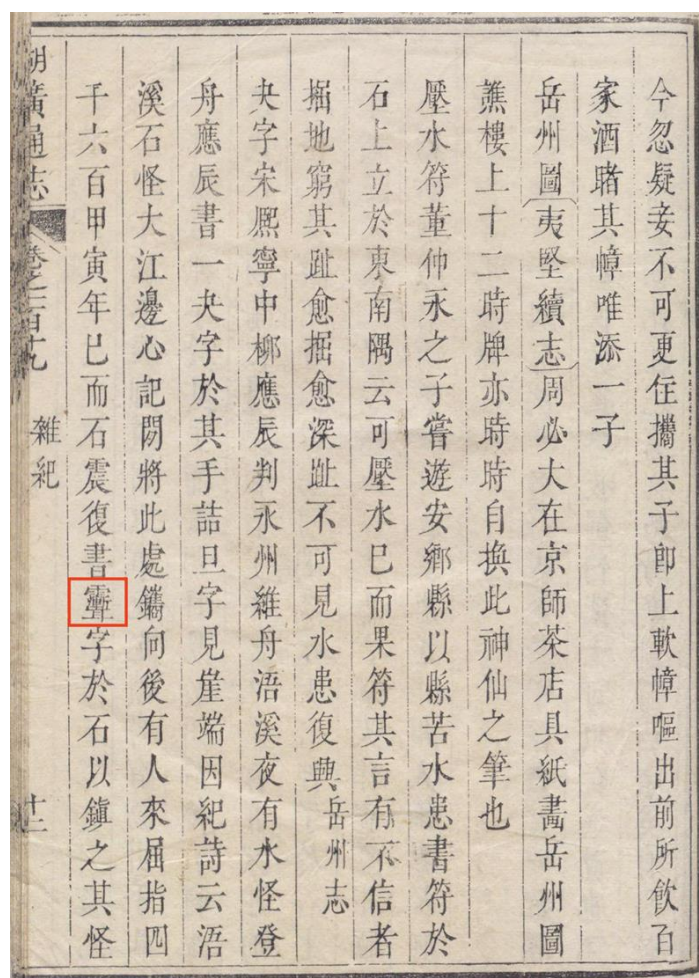 今忽疑妾不可更住攜其子卽上軟幛嘔出前所飲百
家酒睹其幛唯添一子
岳州圖夷堅續志周必大在京師茶店具紙畵岳州圖
譙樓上十二時牌亦時時自換此神仙之筆也
壓水符董仲永之子嘗遊安鄉縣以縣苦水患書符於
石上立於東南隅云可壓水已而果符其言有不信者
掘地窮其趾愈掘愈深趾不可見水患復興岳州志
夬字宋熈寧中柳應辰判永州維舟浯溪夜有水怪登
舟應辰書一夬字於其手詰旦字見崖端因紀詩云浯
溪石怪大江邊心記閉將此處鐫向後有人來屈指四
千六百甲寅年已而石震復書字於石以鎭之其怪
湖廣通志
卷之一百十九
雜紀
十二